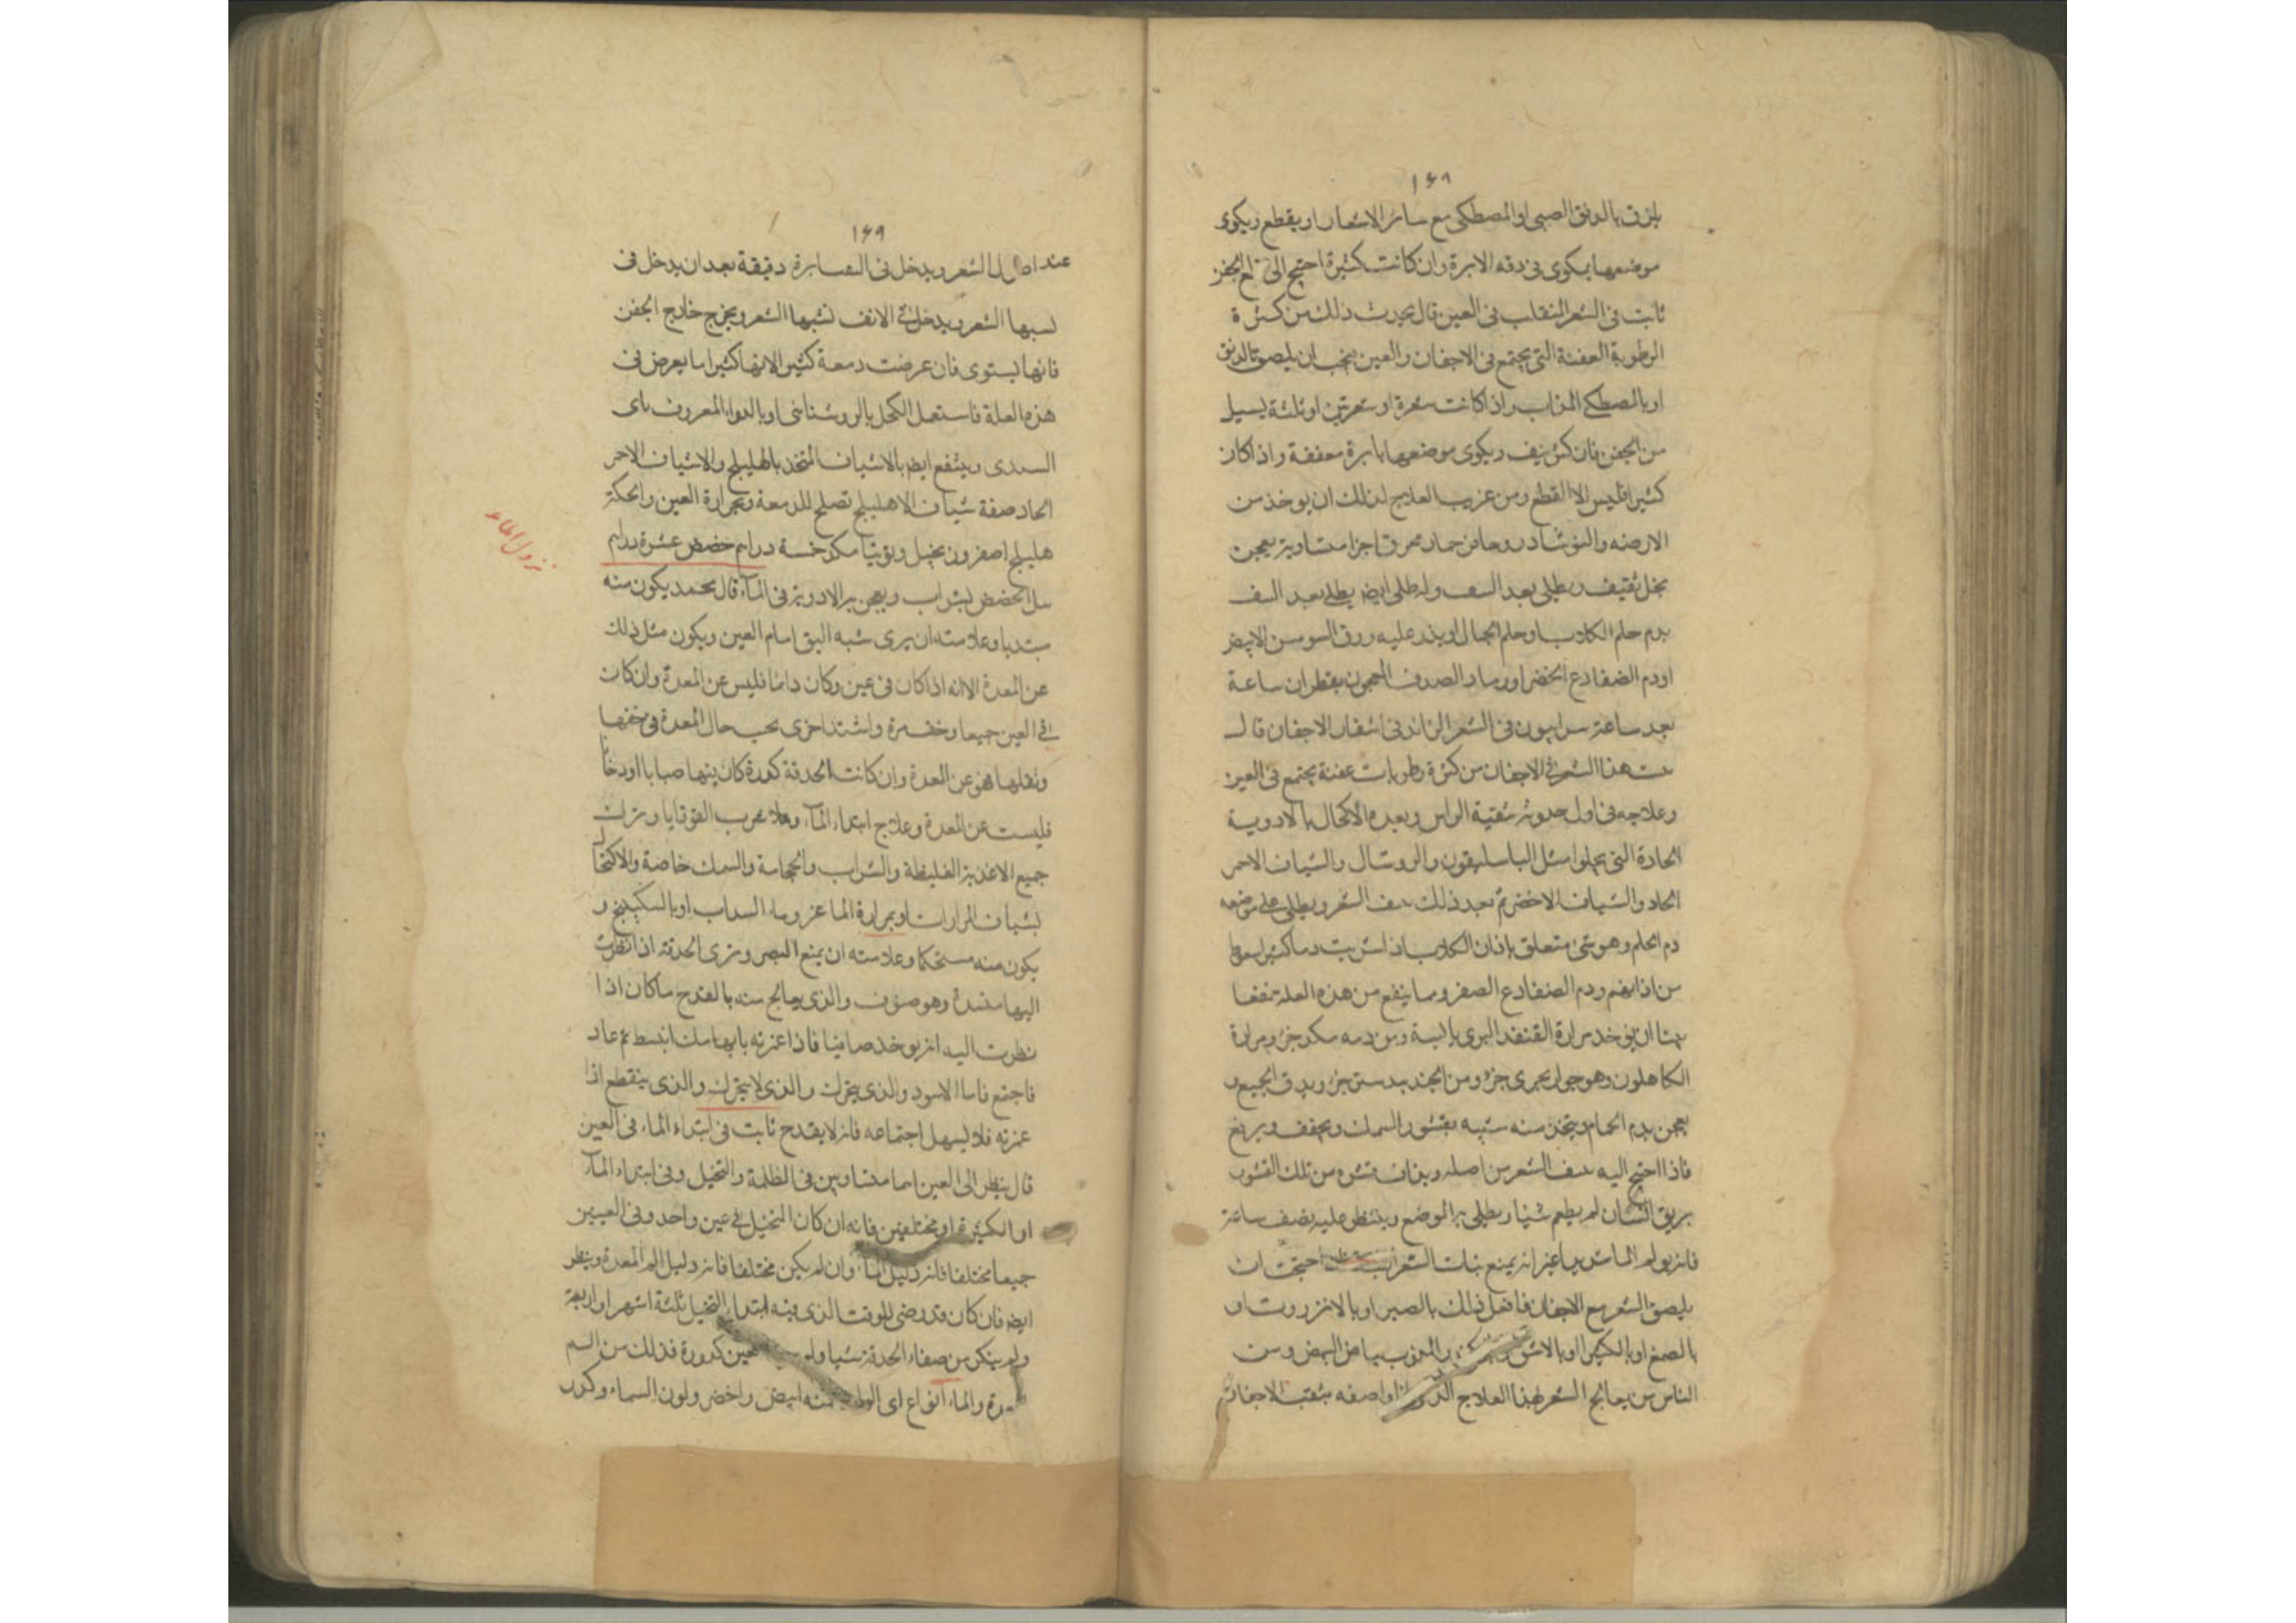 ١٤٨
يلزق بالدبق الصيى او المصطكى مع سائر الاشعار او يقطع ويكوى
موضعها بمكوى فى دقه الابرة وان كانت كثيرة احتيج الى الجفن
ثابت فى الشعر المنقلب فى العين قال يحدث ذلك من كثرة
الرطوبة العفنة التى يجتمع فى الاجفان والعين يجب ان يلصق بالدبق
او بالمصطكى المذاب واذا كانت شعرة او شعرتين او ثلثة يسيل
من الجفن فان كثر نتف ويكوى موضعها بابرة معقفة واذا كان
كثيرا فليس الا القطع ومن غريب العلاج لذلك ان يوخذ من
الارضه والنوشادر وحافر حمار محرق اجزا متساوية يعجن
بخل ثقيف ويطلى بعد النتف وله طلى ايضا يطلى بعد النتف
بدم حلم الكلاب او حلم الجمال او يذر عليه ورق السوسن الابيض
او دم الضفادع الخضر او رماد الصدف المعجون بقطران ساعة
بعد ساعة سرابيون فى الشعر الزائد فى اشفار الاجفان قال
هذا الشعر فى الاجفان من كثرة رطوبات عفنة يجتمع فى العين
وعلاجه فى اول حدوثه تنقية الراس وبعده الاكحال بالادوية
الحادة التى يجلوا مثل الباسليقون والروشنال والشياف الاحمر
الحاد والشياف الاخضر ثم بعد ذلك نتف الشعر ويطلى على موضعه
دم الحلم وهو شئ متعلق باذان الكلاب اذا شربت دما كثيرا سقط
من اذانهم ودم الضفادع الصفر ومما ينفع من هذه العلة منفعا
بينا ان يوخذ مرارة القنفذ البرى يابسة ومن دمه مكد جزؤ ومرارة
الكاهلون وهو حوار بحرى جزؤ ومن الجندبيدستر جزؤ ويدق الجميع و
يعجن بدم الحمام ويتخذ منه شبيه بقشور السمك ويجفف ويرفع
فاذا احتيج اليه نتف الشعر من اصله ويذاف قشره من تلك القشور
بريق انسان لم يطعم شيئا ويطلى به الموضع وينتظر عليه نصف ساعة
فانه يولم الما شديدا غير انه يمنع نبات الشعر احتجت ان
يلصق الشعر مع الاجفان فافعل ذلك بالصبر او بالانزروت او
بالصمغ او بالكثيرا او بالاشق المذوب بياض البيض ومن
الناس من يعالج الشعر بهذا العلاج الذى اواصفه بثقب الاجفان
١٤٩
عند اصل الشعر ويدخل فى الصنابرة دقيقة بعد ان يدخل فى
لسبها الشعر ويدخل فى الانف لشبها الشعر ويخرج خارج الجفن
فانها يستوى فان عرضت دمعة كثير الانها كثيرا ما يعرض فى
هذه العلة فاستعمل الكحل بالروشنائى او بالدواء المعروف باى
السندى وينتفع ايضا بالاشياف المتخذ بالهليلج والاشياف الاحمر
الحاد صفة شياف الاهليلج تصلح للدمعة وحرارة العين والحكة
هليلج اصفر وزنجبيل وتوتيا مكد خمسة دراهم حضض عشرة دراهم
نزول الماء
يبل الحضض بشراب ويعجن به الادوية فى الماء قال محمد يكون منه
مبتديا وعلامته ان يرى شبه البق امام العين ويكون مثل ذلك
عن المعدة الا انه اذا كان فى عين وكان دائما فليس عن المعدة وان كان
فى العين جميعا وخف مرة واشتد اخرى بحسب حال المعدة فى خفتها
وثقلها فهو عن المعدة وان كانت الحدقة كدرة كان بينها ضبابا او دخانا
فليست عن المعدة وعلاج ابتداء الماء وهلا بحرب القوقايا وترك
جميع الاغذية الغليظة والشراب والحجامة والسمك خاصة والاكتحال
بشياف المرارات او بمرارة الماعز وماء السداب او بالسكبينج و
يكون منه مستحكما وعلامته ان يمنع البصر وترى الحدقة اذا نظرت
اليها منسدة وهو صنوف والذى يعالج منه بالقدح ما كان اذا
نظرت اليه انه يوخذ صافيا فاذا غمزته بابهامك انبسط ثم عاد
فاجتمع فاما الاسود والذى يتحرك والذى لا يتحرك والذى ينقطع اذا
غمزته فلا يسهل اجتماعه فانه لا يقدح ثابت فى ابتداء الماء فى العين
قال ينظر الى العين انهما متساويين فى الظلمة والتخيل وفى ابتداء الماء
او الكثيرة او مختلفين فانه ان كان التخيل فى عين واحد وفى العينين
جميعا مختلفا فانه دليل الماء وان لم يكن مختلفا فانه دليل الم المعدة وينظر
ايضا فان كان قد مضى للوقت الذى فيه ابتداء التخيل ثلثة اشهر او اربعة
ولم ينكر من صفاء الحدقة شيئا ولم العين كدورة فذلك من الم
المعدة والماء انواع اى الوانه منه ابيض واخضر ولون السماء وكدر